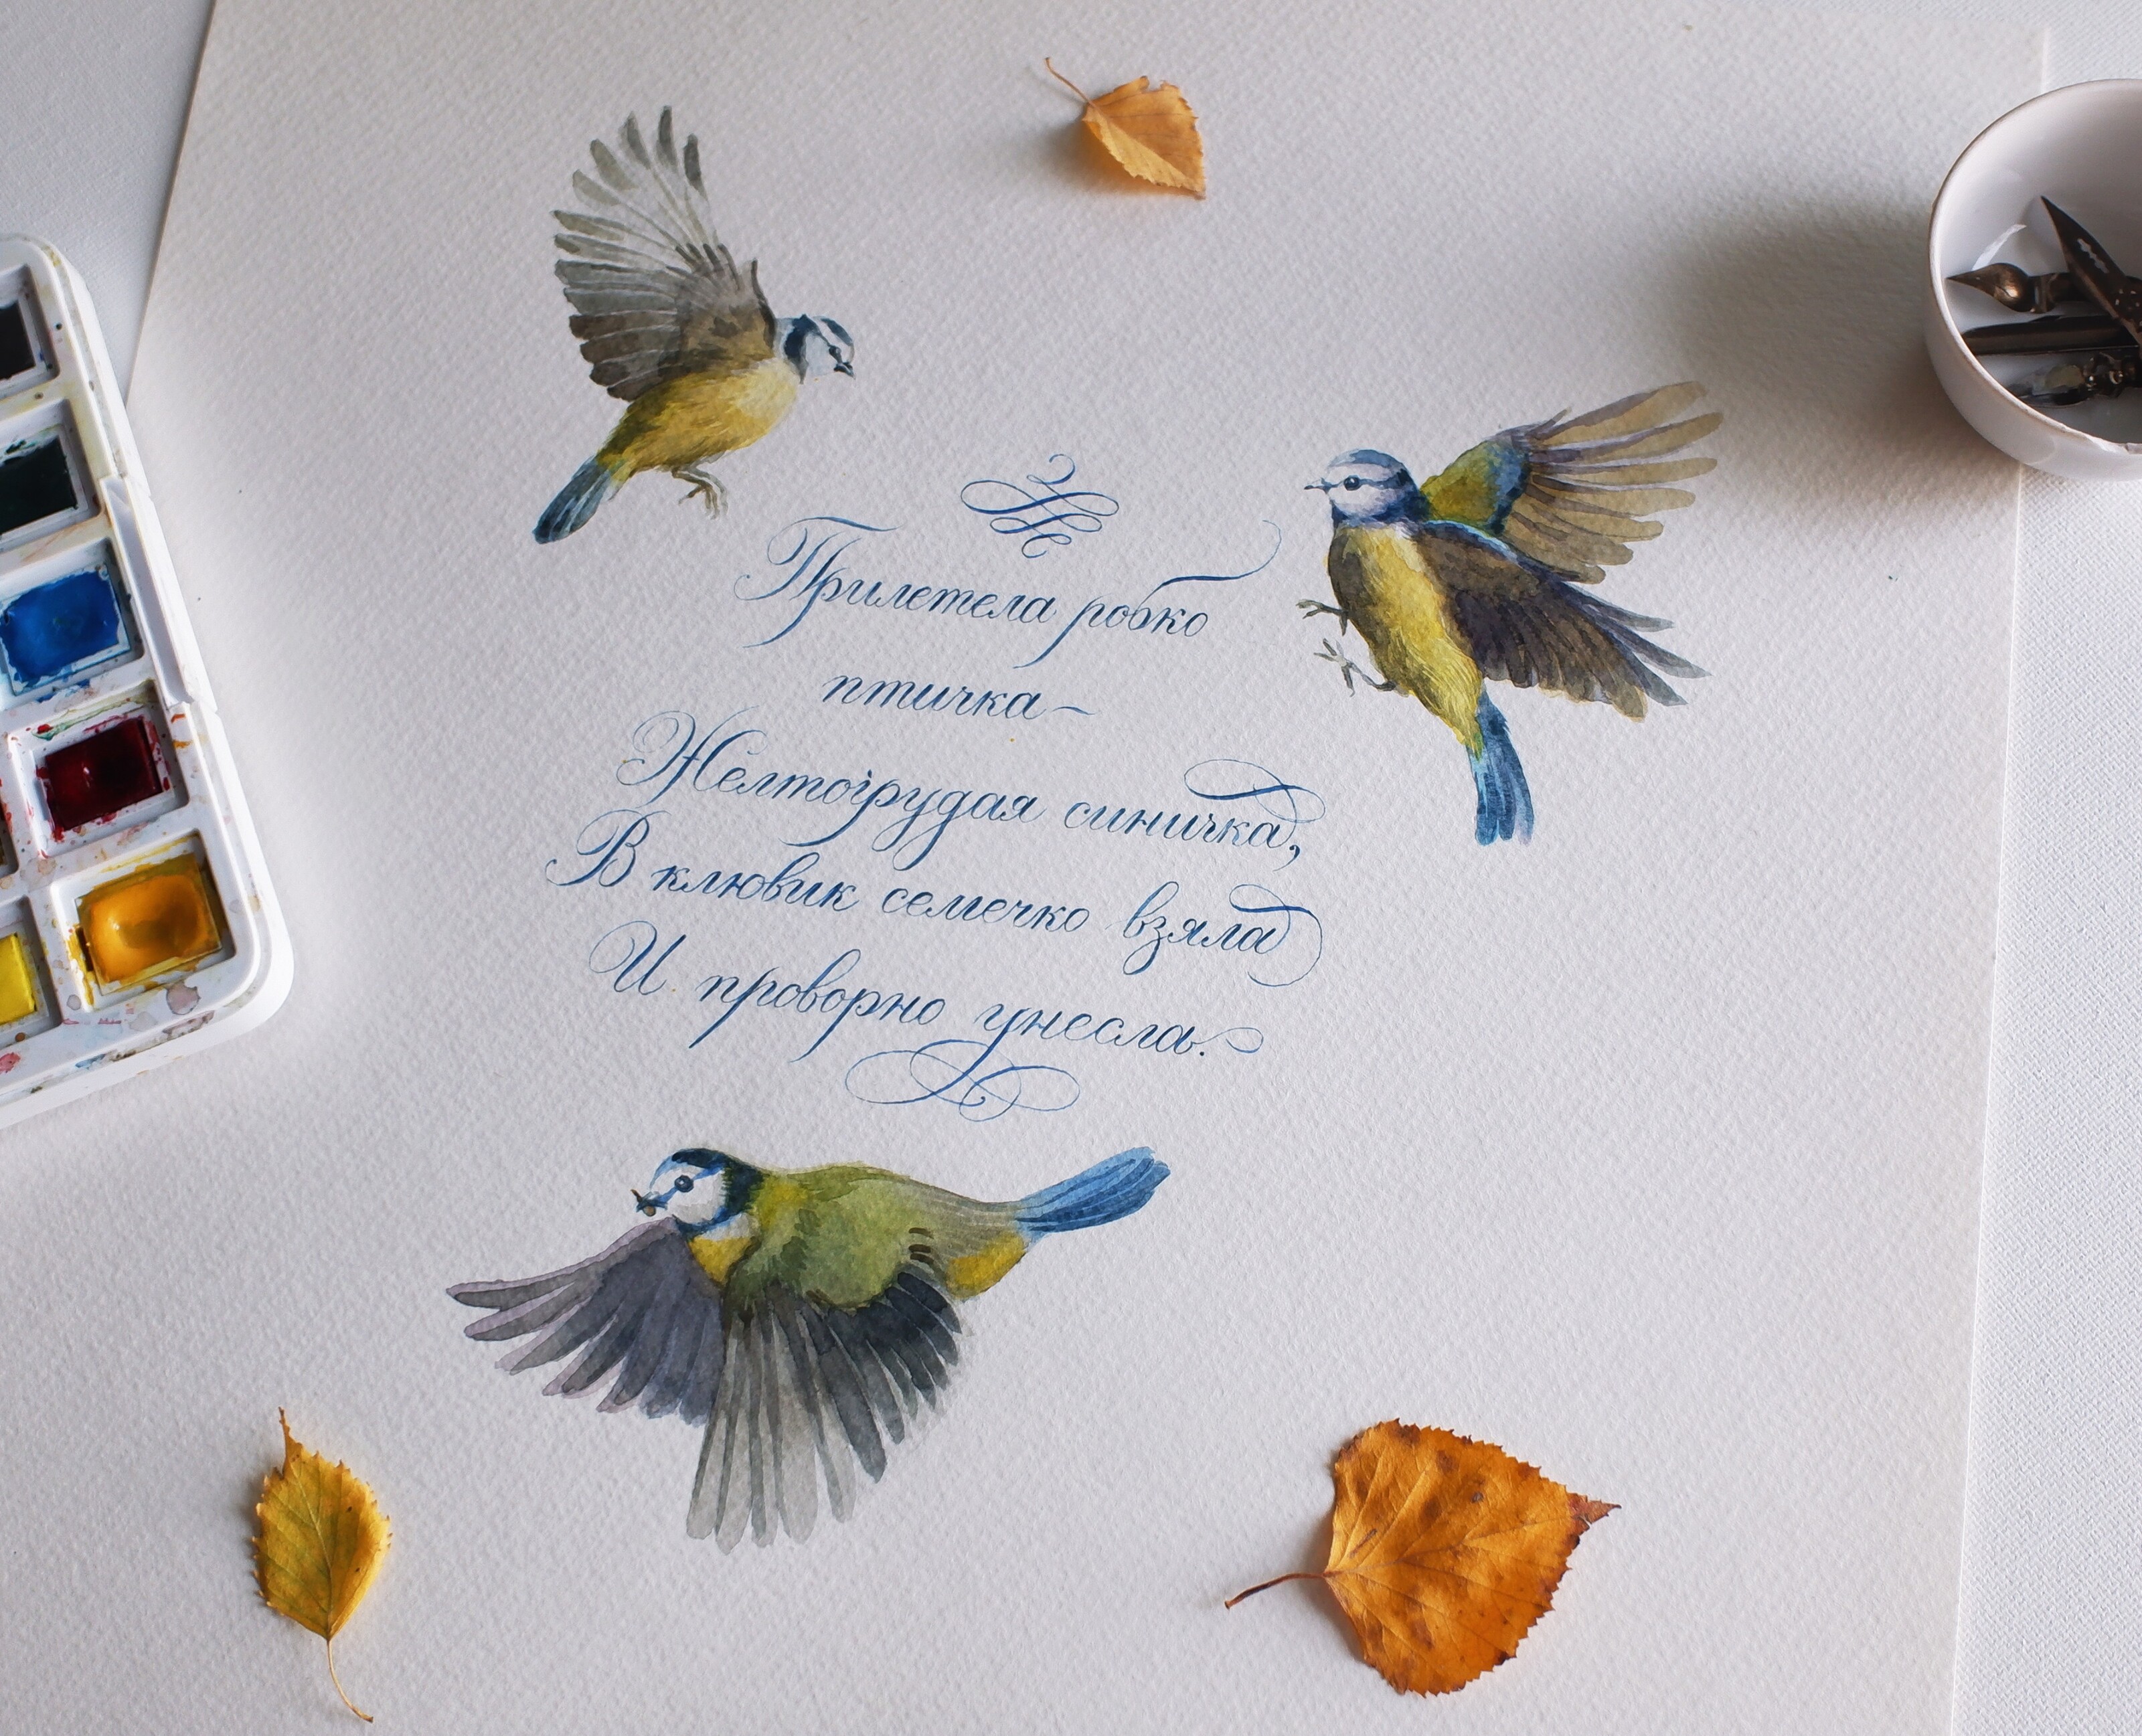 Прилетела робко
птичка –
Желтогрудая синичка,
В клювик семечко взяла
И проворно унесла.